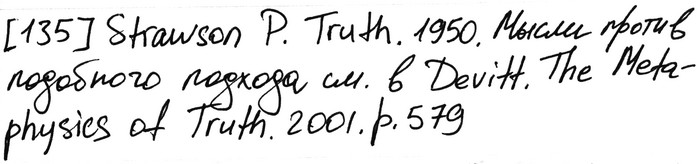 [135] Strawson P. Truth. 1950. Мысли против
подобного подхода см. в Devitt. The Meta-
physics of Truth. 2001. p. 579